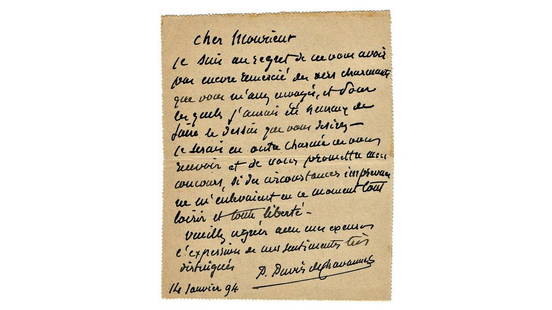 Cher Monsieur
Je suis au regret de ne vous avoir
pas encore remercié des vers charmants
que vous m'avez envoyés, et pour
lesquels j'aurais été heureux de
faire le dessin que vous désirez –
Je serais en outre charmé de vous
recevoir et de vous promettre mon
concours, si des circonstances imprévues
ne m'enlevaient en ce moment tout
loisir et toute liberté –
veuillez agréer avec mes excuses
l'expression de mes sentiments très
distingués
P. Puvis de Chavannes
14 Janvier 94